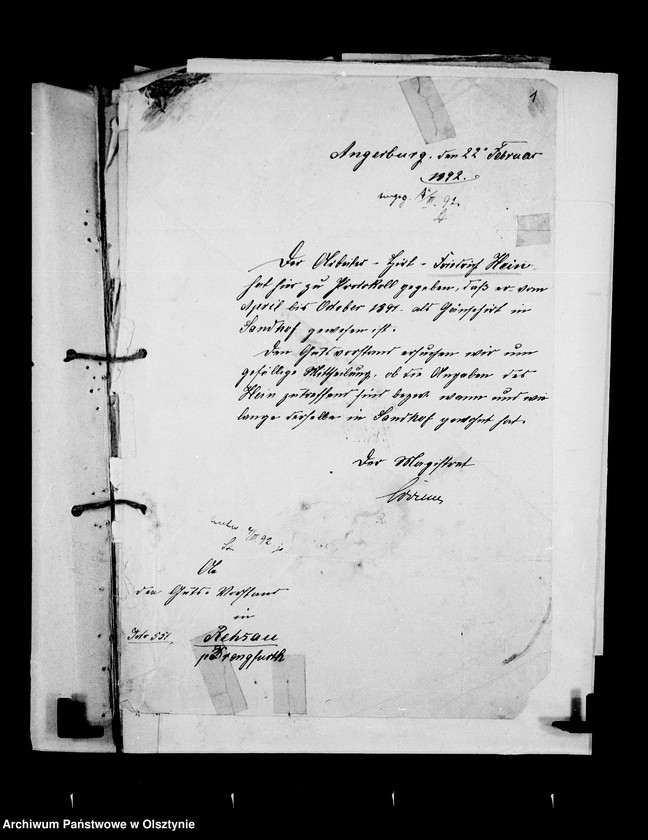 1
Angerburg, den 22ᵗ Februar
1892.
eingeg. 92.
Der Arbeiter - Hirt - Friedrich Hein
hat hier zu Protokoll gegeben, daß er vom
April bis October 1891 als Gänsehirt in
Sandhof gewesen ist.
Den Gutsvorstand ersuchen wir um
gefällige Mittheilung, ob die Angaben des
Hein zutreffend sind bezw. wann und wie
lange derselbe in Sandhof gewohnt hat.
Der Magistrat
92
An
den Guts-Vorstand
in
Rehsau
p Drengfurth
551
Archiwum Państwowe w Olsztynie